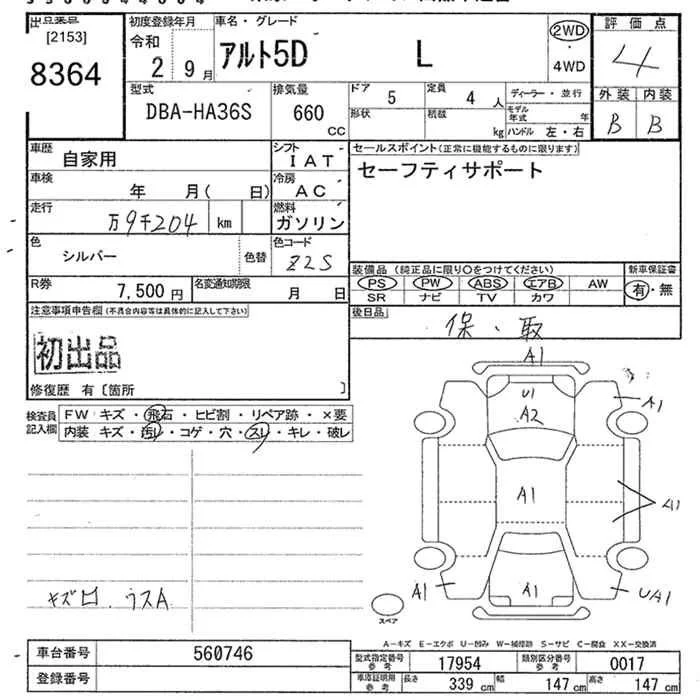 [2153]
8364
初度登録年月
令和
2 9月
車名・グレード
アルト5D L
2WD
・
4WD
評価点
4
外装 内装
B B
型式
DBA-HA36S
排気量
660
CC
ドア 5
定員 4 人
形状
積載 kg
ディーラー・並行
モデル
年式 年
ハンドル 左・右
車歴
自家用
シフト
IAT
車検
年 月( 日)
冷房
AC
走行
万9千204 km
燃料
ガソリン
色
シルバー
色替
色コード
Z2S
R券
7,500 円
名変通知期限
月 日
セールスポイント(正常に機能するものに限ります)
セーフティサポート
装備品(純正品に限り〇をつけてください)
PS PW ABS エアB AW
SR ナビ TV カワ
新車保証書
有・無
後日品
保・取
注意事項申告欄(不具合内容等は具体的に記入して下さい)
初出品
修復歴 有〔箇所 〕
検査員
記入欄
FW キズ・飛石・ヒビ割・リペア跡・×要
内装 キズ・汚レ・コゲ・穴・スレ・キレ・破レ
A1
U1
A2
A1
A1
A1
A1
A1
UA1
スペア
A-キズ E-エクボ U-凹み W-補修跡 S-サビ C-腐食 XX-交換済
車台番号
560746
登録番号
型式指定番号
参考
17954
類別区分番号
参考
0017
車庫証明用
参考
長さ 339 cm
幅 147 cm
高さ 147 cm